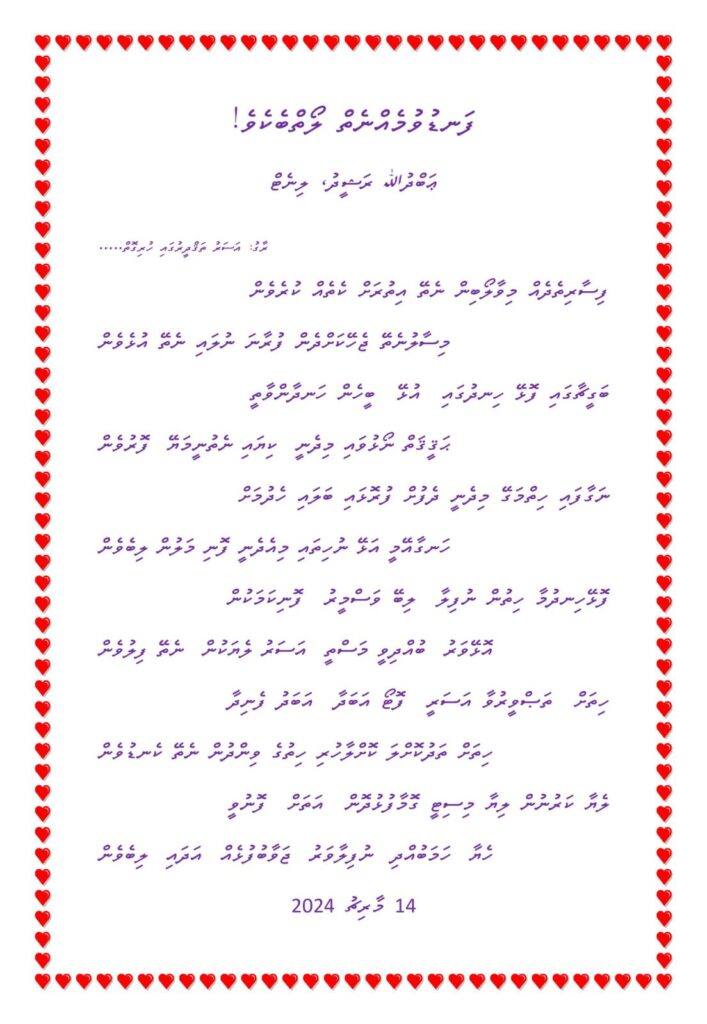 ފަނޑުވުމެއްނެތް ލޯތްބެކެވެ!
ޢަބްދުﷲ ރަޝީދު، ލިނެޓް
ރާގު: އަސަރު ތަޤްދީރުގައި ހުރިގޮތް.....
ފިސާރިތެދެއް މިވާލޯބިން ނެތޭ އިތުރަށް ކެތެއް ކުރެވެން
މިސާލުނެތޭ ޖެހޭކަށްދެން ފުރާނަ ނުލައި ނެތޭ އުޅެވެން
ބަގީޗާގައި ފޮޅޭ ހިނދުގައި އުޅޭ ބީހެން ހަނދާންވާތީ
ޙަޤީޤަތް ނޯޅުވައި މިދެނީ ކިޔައި ނެތުނީމަޔޭ ފޮރުވެން
ނަގާފައި ހިތްމަގޭ މިދެނީ ދެފުށް ފުރޮޅައި ބަލައި ހެދުމަށް
ހަނގާއޭމީ އަޅޭ ނުހިތައި މިއެދެނީ ފޮނި މަލުން ލިބެވެން
ފޮޅޭހިނދުމާ ހިތުން ނުފިލާ ލިބޭ ވަސްމީރު ފޮނިކަމަކުން
އޮޅޭވަރު ބުއްދިވީ މަސްތީ އަސަރު ލެޔަކުން ނެތޭ ފިލުވެން
ހިތަށް ތަޞްވީރުވާ އަސަރީ ފޮޓޯ އަބަދާ އަބަދު ފެނިދާ
ހިތަށް ތަދުކޮށްލަ ކޮށްލާހުރި ހިތުގެ ވިންދުން ނެތޭ ކެނޑުވެން
ލެޔާ ކަރުނުން ލިޔާ މިސިޓީ ގޮމާފުޅުދޮން އަތަށް ފޮނުވީ
ހެޔާ ހަމަބުއްދި ނުފިލާވަރު ޖަވާބުފުޅެއް އަދައި ލިބެވެން
14 މާރިޗު 2024